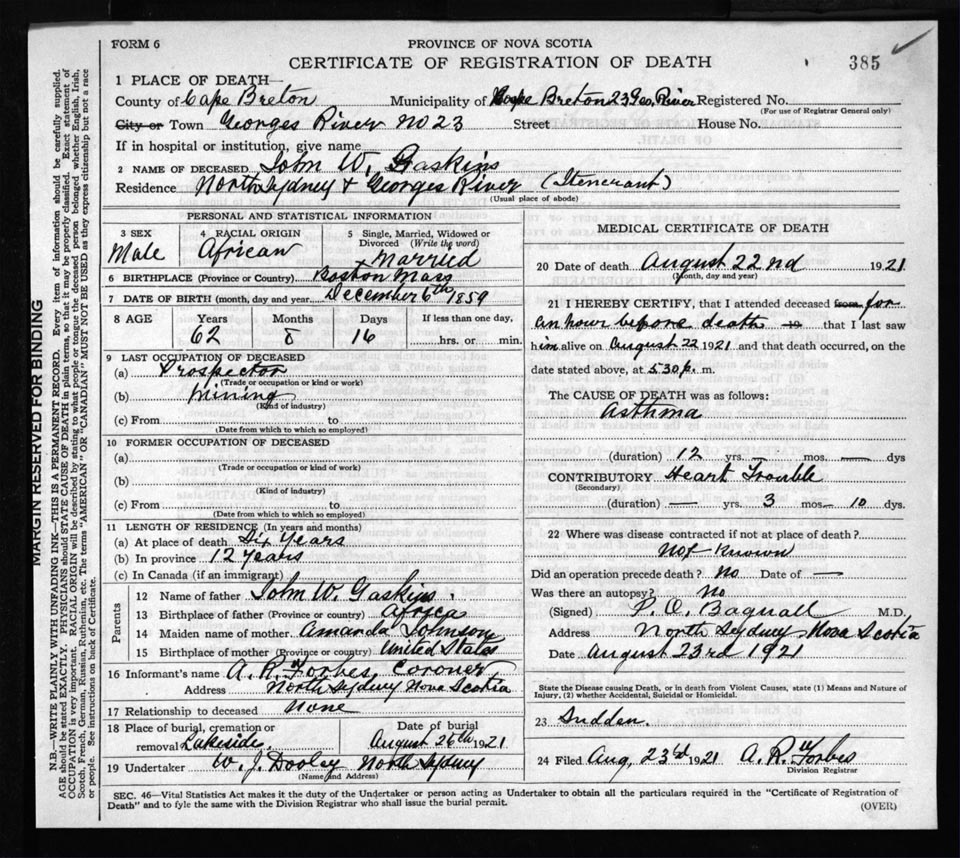 FORM 6
PROVINCE OF NOVA SCOTIA
CERTIFICATE OF REGISTRATION OF DEATH
385
1 PLACE OF DEATH—
County of Cape Breton Municipality of Cape Breton 23 Geo. River Registered No.
(For use of Registrar General only)
City or Town Georges River No 23 Street House No.
If in hospital or institution, give name
2 NAME OF DECEASED John W. Gaskins
Residence North Sydney & Georges River (Itenerant)
(Usual place of abode)
PERSONAL AND STATISTICAL INFORMATION
3 SEX
Male
4 RACIAL ORIGIN
African
5 Single, Married, Widowed or Divorced (Write the word)
Married
6 BIRTHPLACE (Province or Country) Boston Mass
7 DATE OF BIRTH (month, day and year) December 6th 1859
8 AGE Years Months Days If less than one day,
62 8 16 hrs. or min.
9 LAST OCCUPATION OF DECEASED
(a) Prospector
(Trade or occupation or kind or work)
(b) Mining
(Kind of industry)
(c) From to
(Date from which to which so employed)
10 FORMER OCCUPATION OF DECEASED
(a)
(Trade or occupation or kind of work)
(b)
(Kind of industry)
(c) From to
(Date from which to which so employed)
11 LENGTH OF RESIDENCE (In years and months)
(a) At place of death Six Years
(b) In province 12 Years
(c) In Canada (if an immigrant)
Parents
12 Name of father John W. Gaskins
13 Birthplace of father (Province or country) Africa
14 Maiden name of mother Amanda Johnson
15 Birthplace of mother (Province or country) United States
16 Informant's name A. R. Forbes Coroner
Address North Sydney Nova Scotia
17 Relationship to deceased None
18 Place of burial, cremation or removal Lakeside.
Date of burial
August 26th 1921
19 Undertaker W. J. Dooley North Sydney
(Name and Address)
MEDICAL CERTIFICATE OF DEATH
20 Date of death August 22nd 1921
(Month, day and year)
21 I HEREBY CERTIFY, that I attended deceased from for
an hour before death to that I last saw
him alive on August 22 1921 and that death occurred, on the
date stated above, at 5.30 p. m.
The CAUSE OF DEATH was as follows:
Asthma
(duration) 12 yrs. — mos. — dys
CONTRIBUTORY Heart Trouble
(Secondary)
(duration) — yrs. 3 mos. — 10 dys.
22 Where was disease contracted if not at place of death?
Not Known
Did an operation precede death? No Date of —
Was there an autopsy? No
(Signed) P. O. Bagnall M.D.
Address North Sydney Nova Scotia
Date August 23rd 1921
State the Disease causing Death, or in death from Violent Causes, state (1) Means and Nature of
Injury, (2) whether Accidental, Suicidal or Homicidal.
23 Sudden.
24 Filed Aug, 23rd 1921 A. R. Forbes
Division Registrar
SEC. 46—Vital Statistics Act makes it the duty of the Undertaker or person acting as Undertaker to obtain all the particulars required in the "Certificate of Registration of
Death" and to fyle the same with the Division Registrar who shall issue the burial permit.
(OVER)
MARGIN RESERVED FOR BINDING
N.B.—WRITE PLAINLY WITH UNFADING INK—THIS IS A PERMANENT RECORD. Every item of information should be carefully supplied.
AGE should be stated EXACTLY. PHYSICIANS should STATE CAUSE OF DEATH in plain terms, so that it may be properly classified. Exact statement of
OCCUPATION is very important. RACIAL ORIGIN will be described by stating to what people or tongue the deceased person belonged whether English, Irish,
Scotch, French, German, Russian, Ruthenian, etc. The terms "AMERICAN" OR "CANADIAN" MUST NOT BE USED as they express citizenship but not a race
or people. See instructions on back of Certificate.